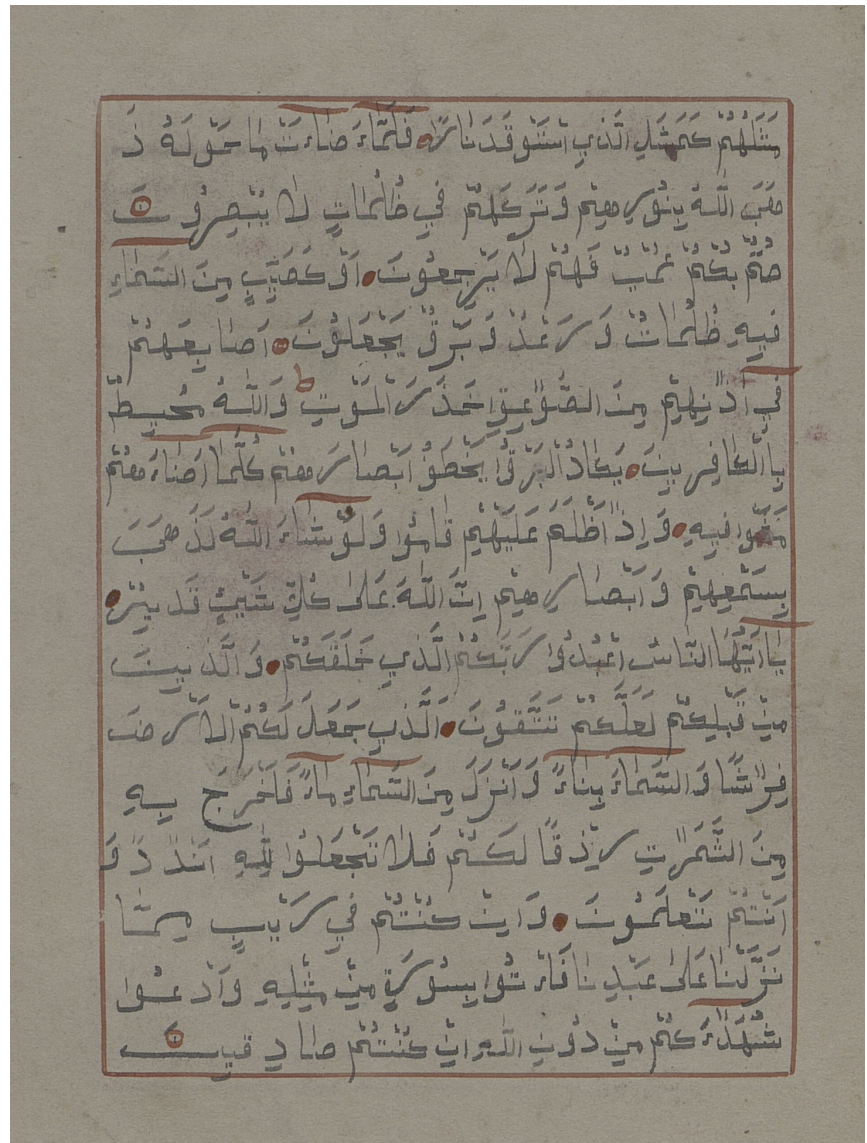 مَثَلُهُمْ كَمَثَلِ الَّذِي اسْتَوْقَدَ نَارًا فَلَمَّاءَ ضَاءَتْ مَا حَوْلَهُ ذَ
هَبَ اللَّهُ بِنُورِهِمْ وَتَرَكَهُمْ فِي ظُلُمَاتٍ لَا يُبْصِرُونَ
صُمٌّ بُكْمٌ عُمْيٌ فَهُمْ لَا يَرْجِعُونَ اَوْ كَصَيِّبٍ مِنَ السَّمَاءِ
فِيهِ ظُلُمَاتٌ وَرَعْدٌ وَبَرْقٌ يَجْعَلُونَ اَصَابِعَهُمْ
فِي اٰذَنِهِمْ مِنَ الصَّوٰعِقِ حَذَرَ الْمَوْتِ ط وَاللَّهُ مُحِيطٌ
بِالْكَافِرِينَ يَكَادُ الْبَرْقُ يَخْطَفُ اَبْصَارَهُمْ كُلَّمَا اَضَاءَ هُمْ
مَشَوْا فِيهِ وَاِذَا اَظْلَمَ عَلَيْهِمْ قَامُوا وَلَوْ شَاءَ اللَّهُ لَذَهَبَ
بِسَمْعِهِمْ وَاَبْصَارِهِمْ اِنَّ اللَّهَ عَلَىٰ كُلِّ شَيْءٍ قَدِيرٌ
يَااَيُّهَا النَّاسُ اعْبُدُوا رَبَّكُمُ الَّذِي خَلَقَكُمْ وَالَّذِينَ
مِنْ قَبْلِكُمْ لَعَلَّكُمْ تَتَّقُونَ الَّذِي جَعَلَ لَكُمُ الْاَرْضَ
فِرٰشًا وَالسَّمَاءَ بِنَاءً وَاَنْزَلَ مِنَ السَّمَاءِ مَاءً فَاَخْرَجَ بِهِ
مِنَ الثَّمَرٰتِ رِزْقًا لَكُمْ فَلَا تَجْعَلُوا لِلَّهِ اَنْدٰدًا وَ
اَنْتُمْ تَعْلَمُونَ وَاِنْ كُنْتُمْ فِي رَيْبٍ مِمَّا
نَزَّلْنَا عَلَىٰ عَبْدِنَا فَاءْتُوا بِسُورَةٍ مِنْ مِثْلِهِ وَادْعُوا
شُهَدٰءَكُمْ مِنْ دُونِ اللَّهِ اِنْ كُنْتُمْ صَادِقِينَ